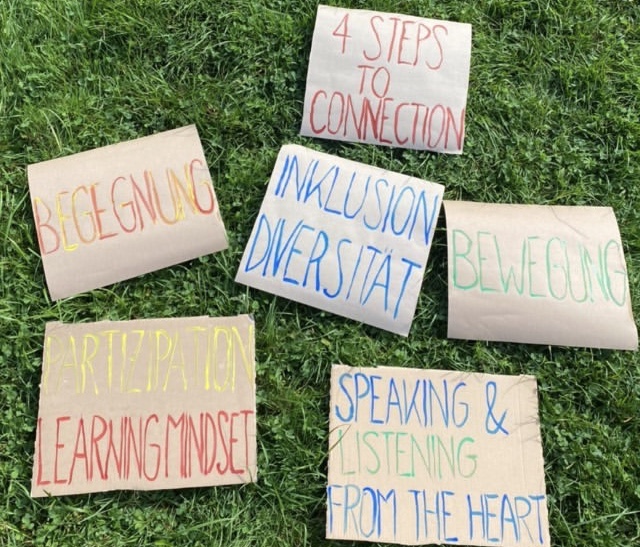 4 STEPS
TO
CONNECTION
BEGEGNUNG
INKLUSION
DIVERSITÄT
BEWEGUNG
PARTIZIPATION
LEARNING MINDSET
SPEAKING &
LISTENING
FROM THE HEART